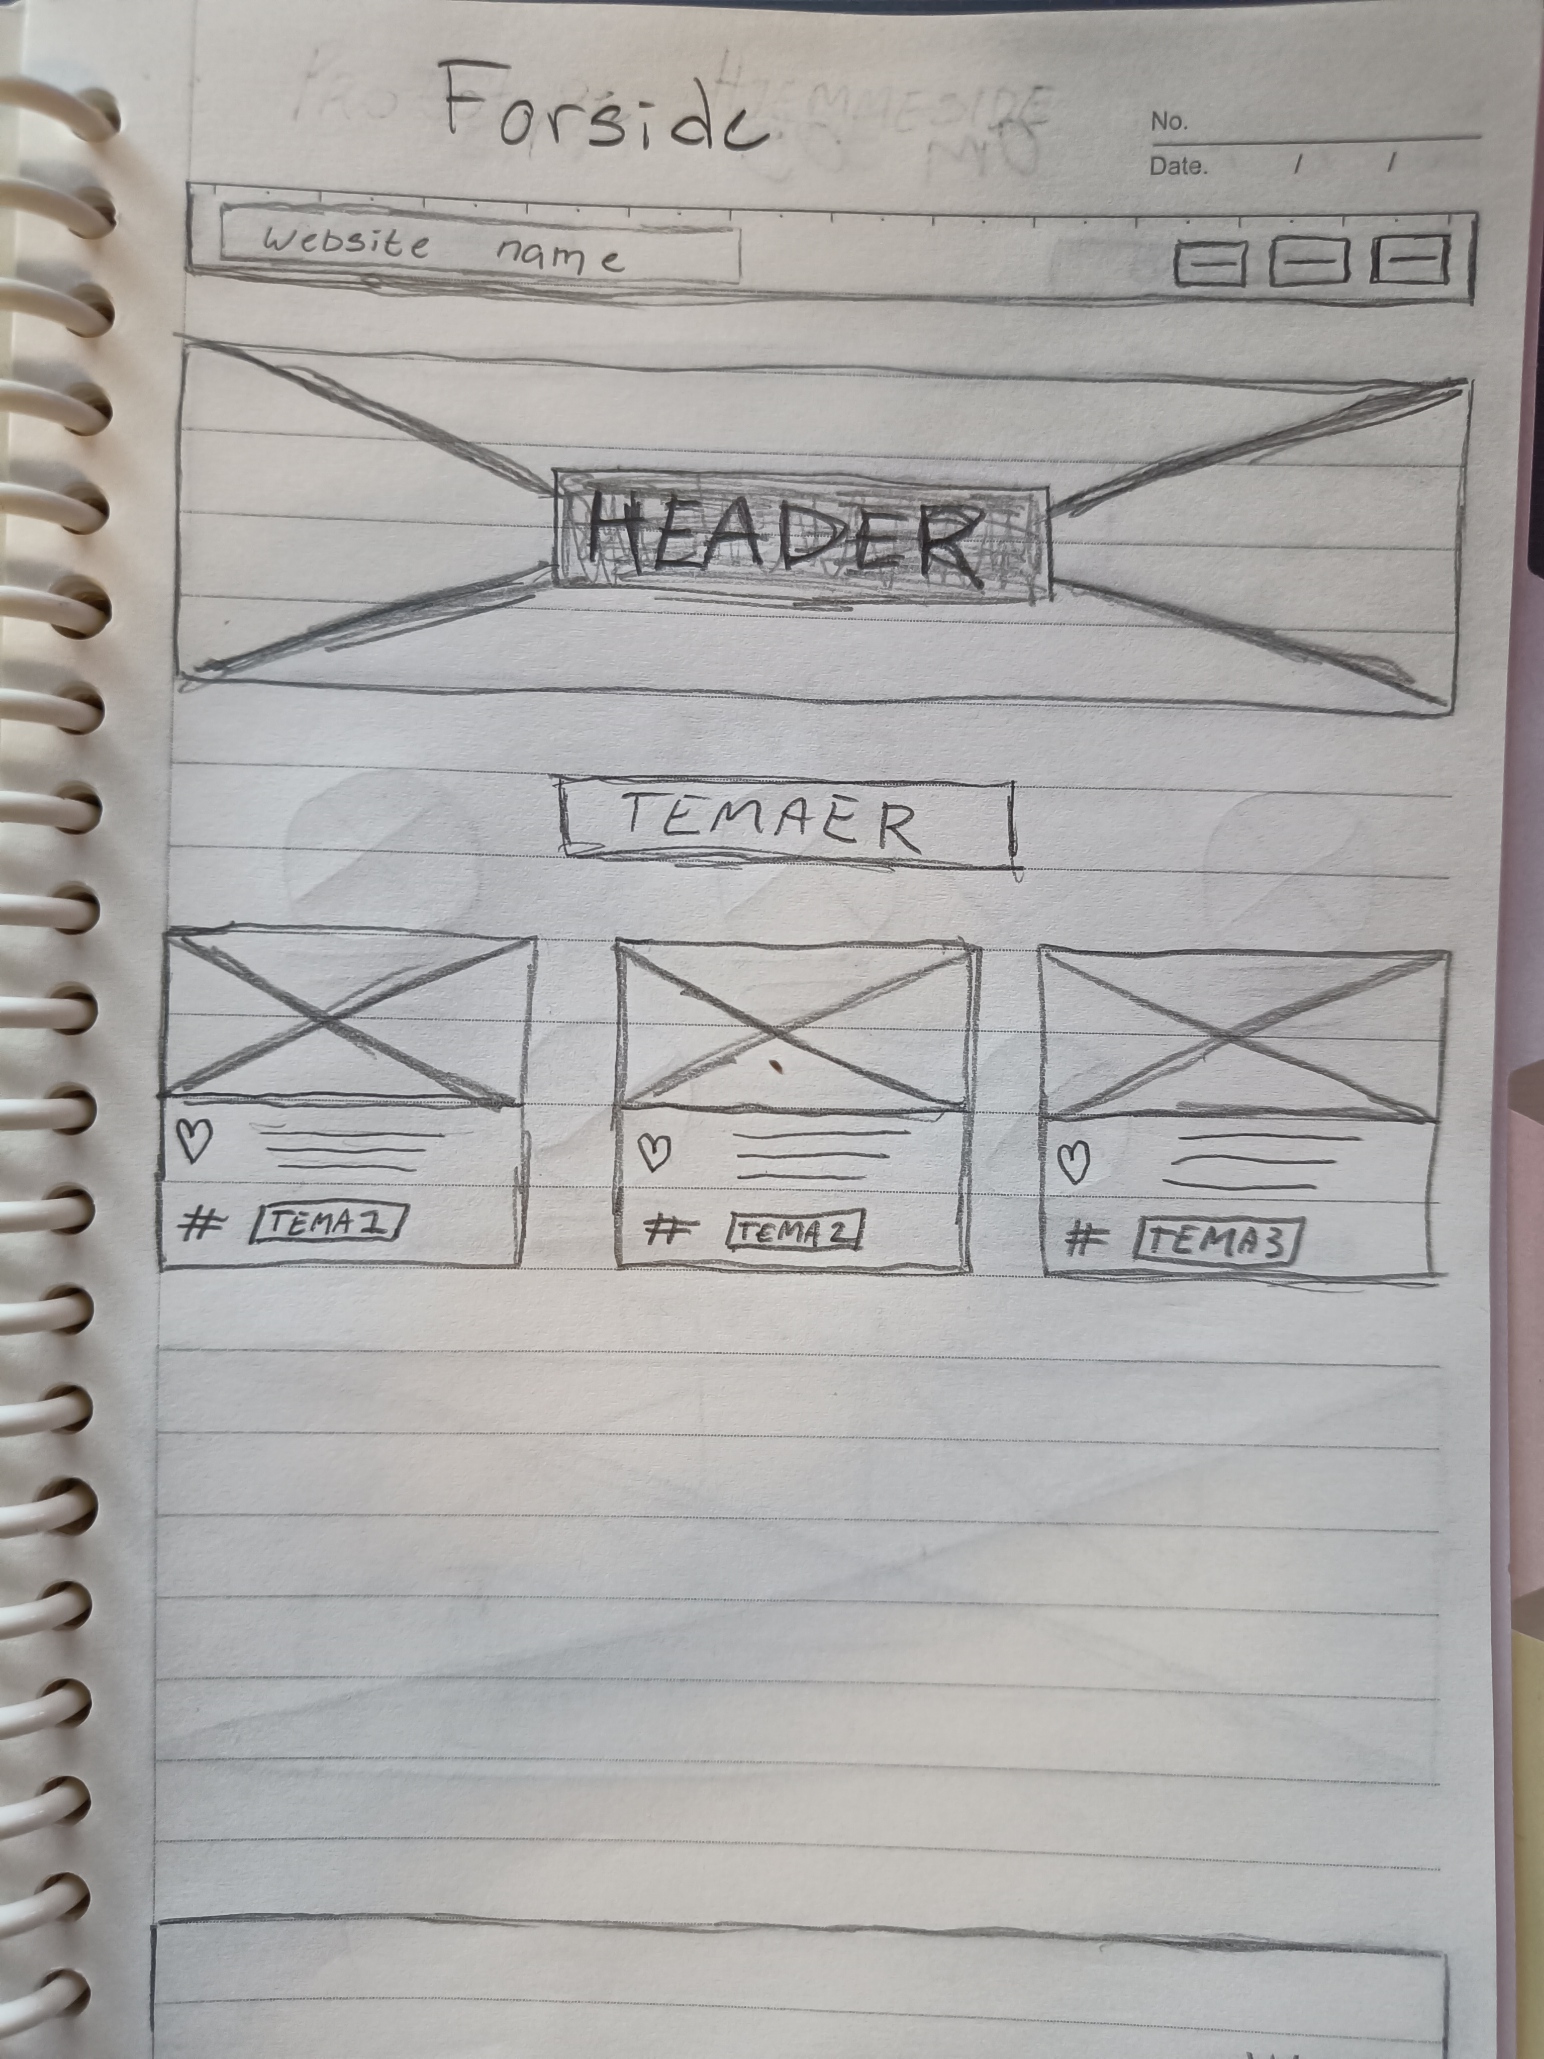 Forside
No.
Date. / /
Website name
HEADER
TEMAER
# TEMA1 # TEMA2 # TEMA3